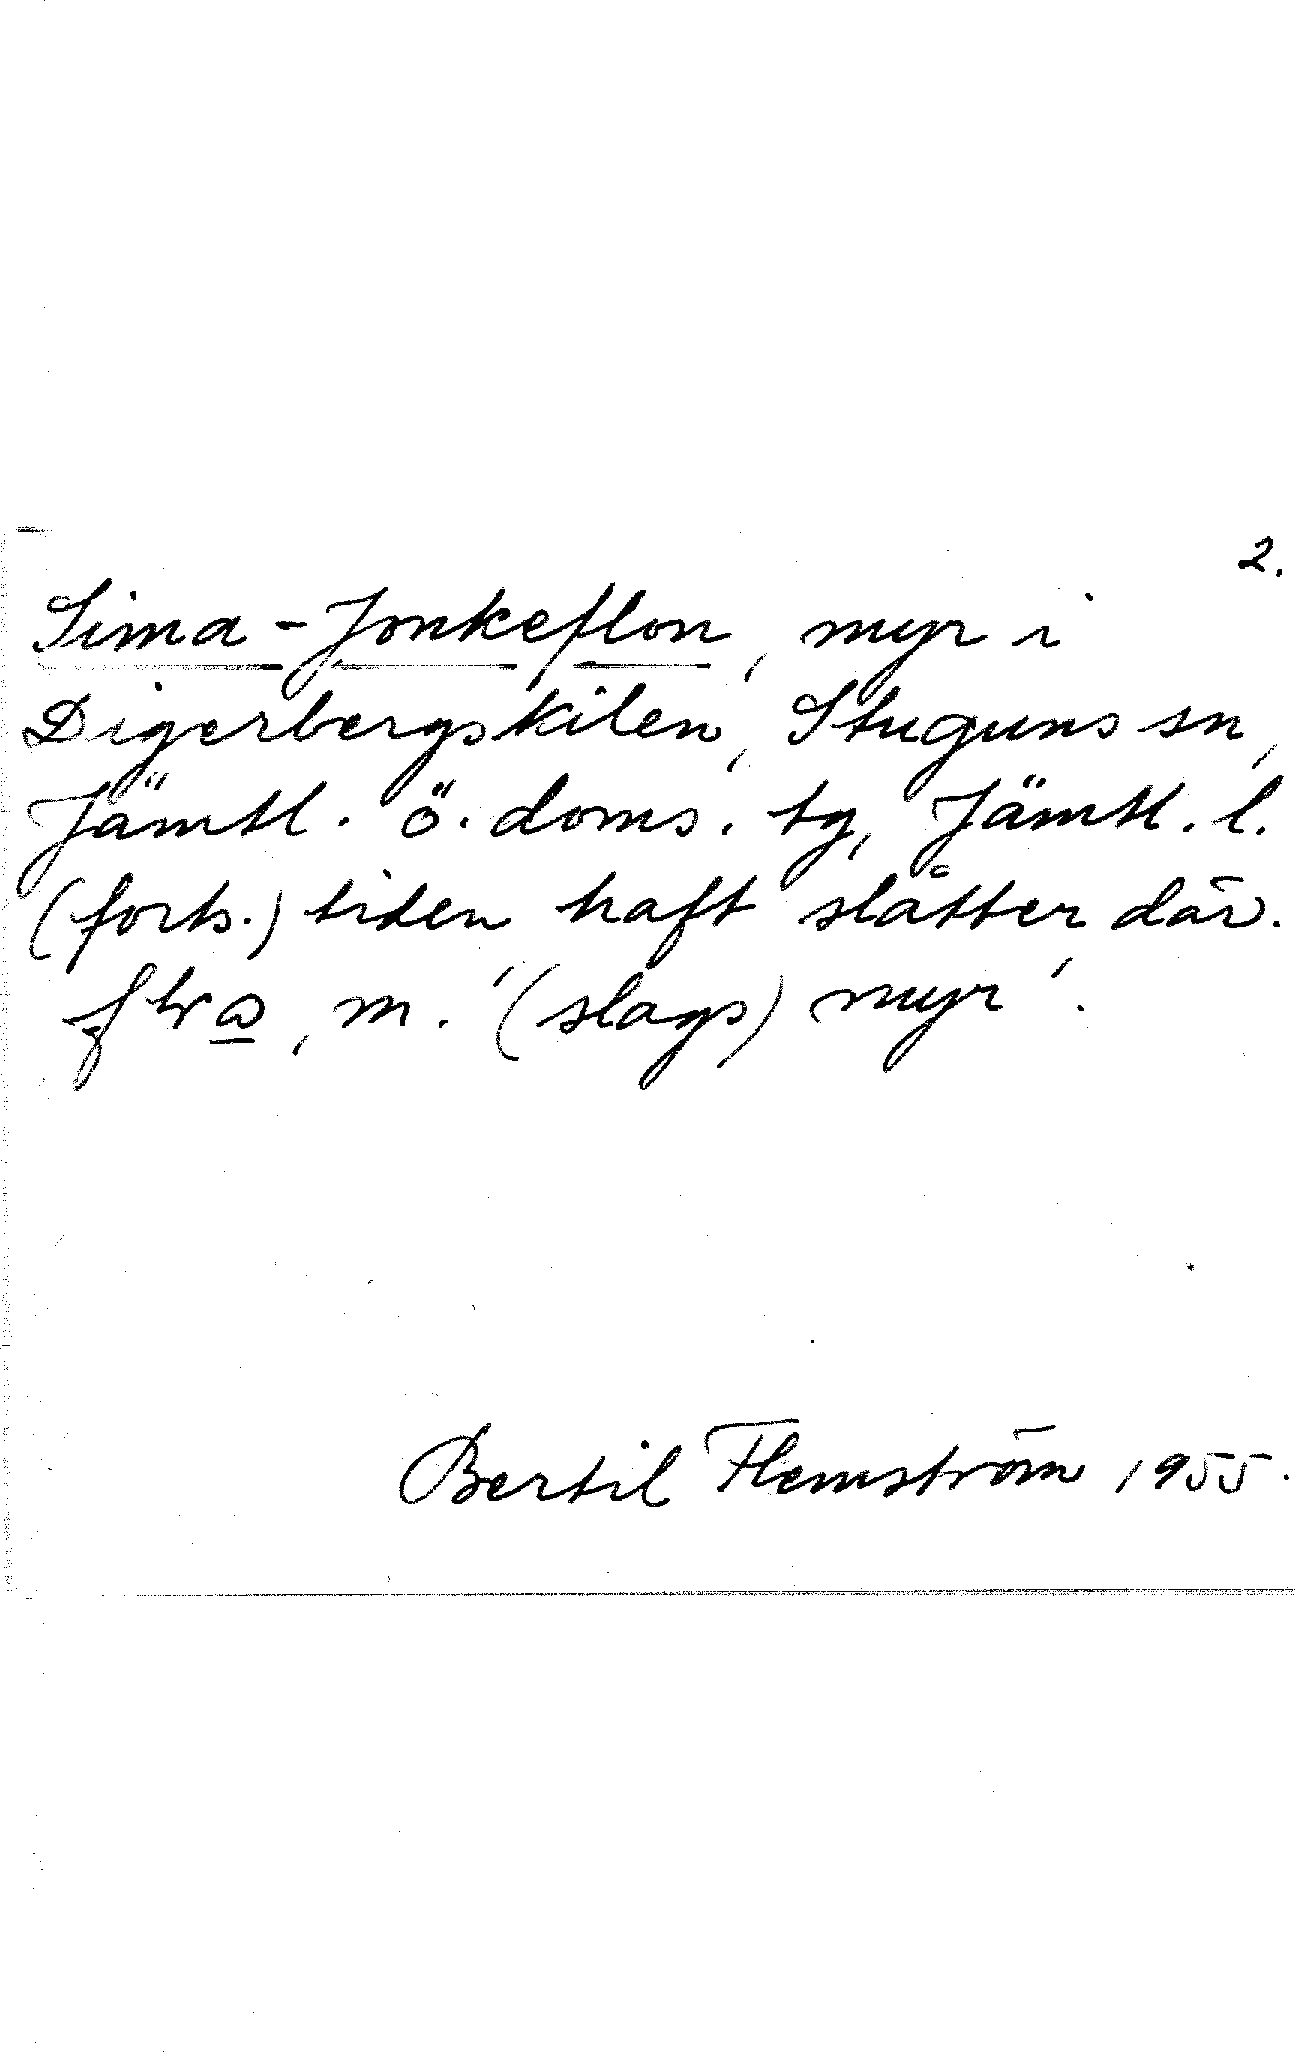 2.
Sima-Jonkeflon, myr i
Digerbergskilen, Stuguns sn,
Jämtl. ö. doms. tg, Jämtl. l.
(forts.) tiden haft slåtter där.
m. '(slags) myr'.
Bertil Flemström 1955.